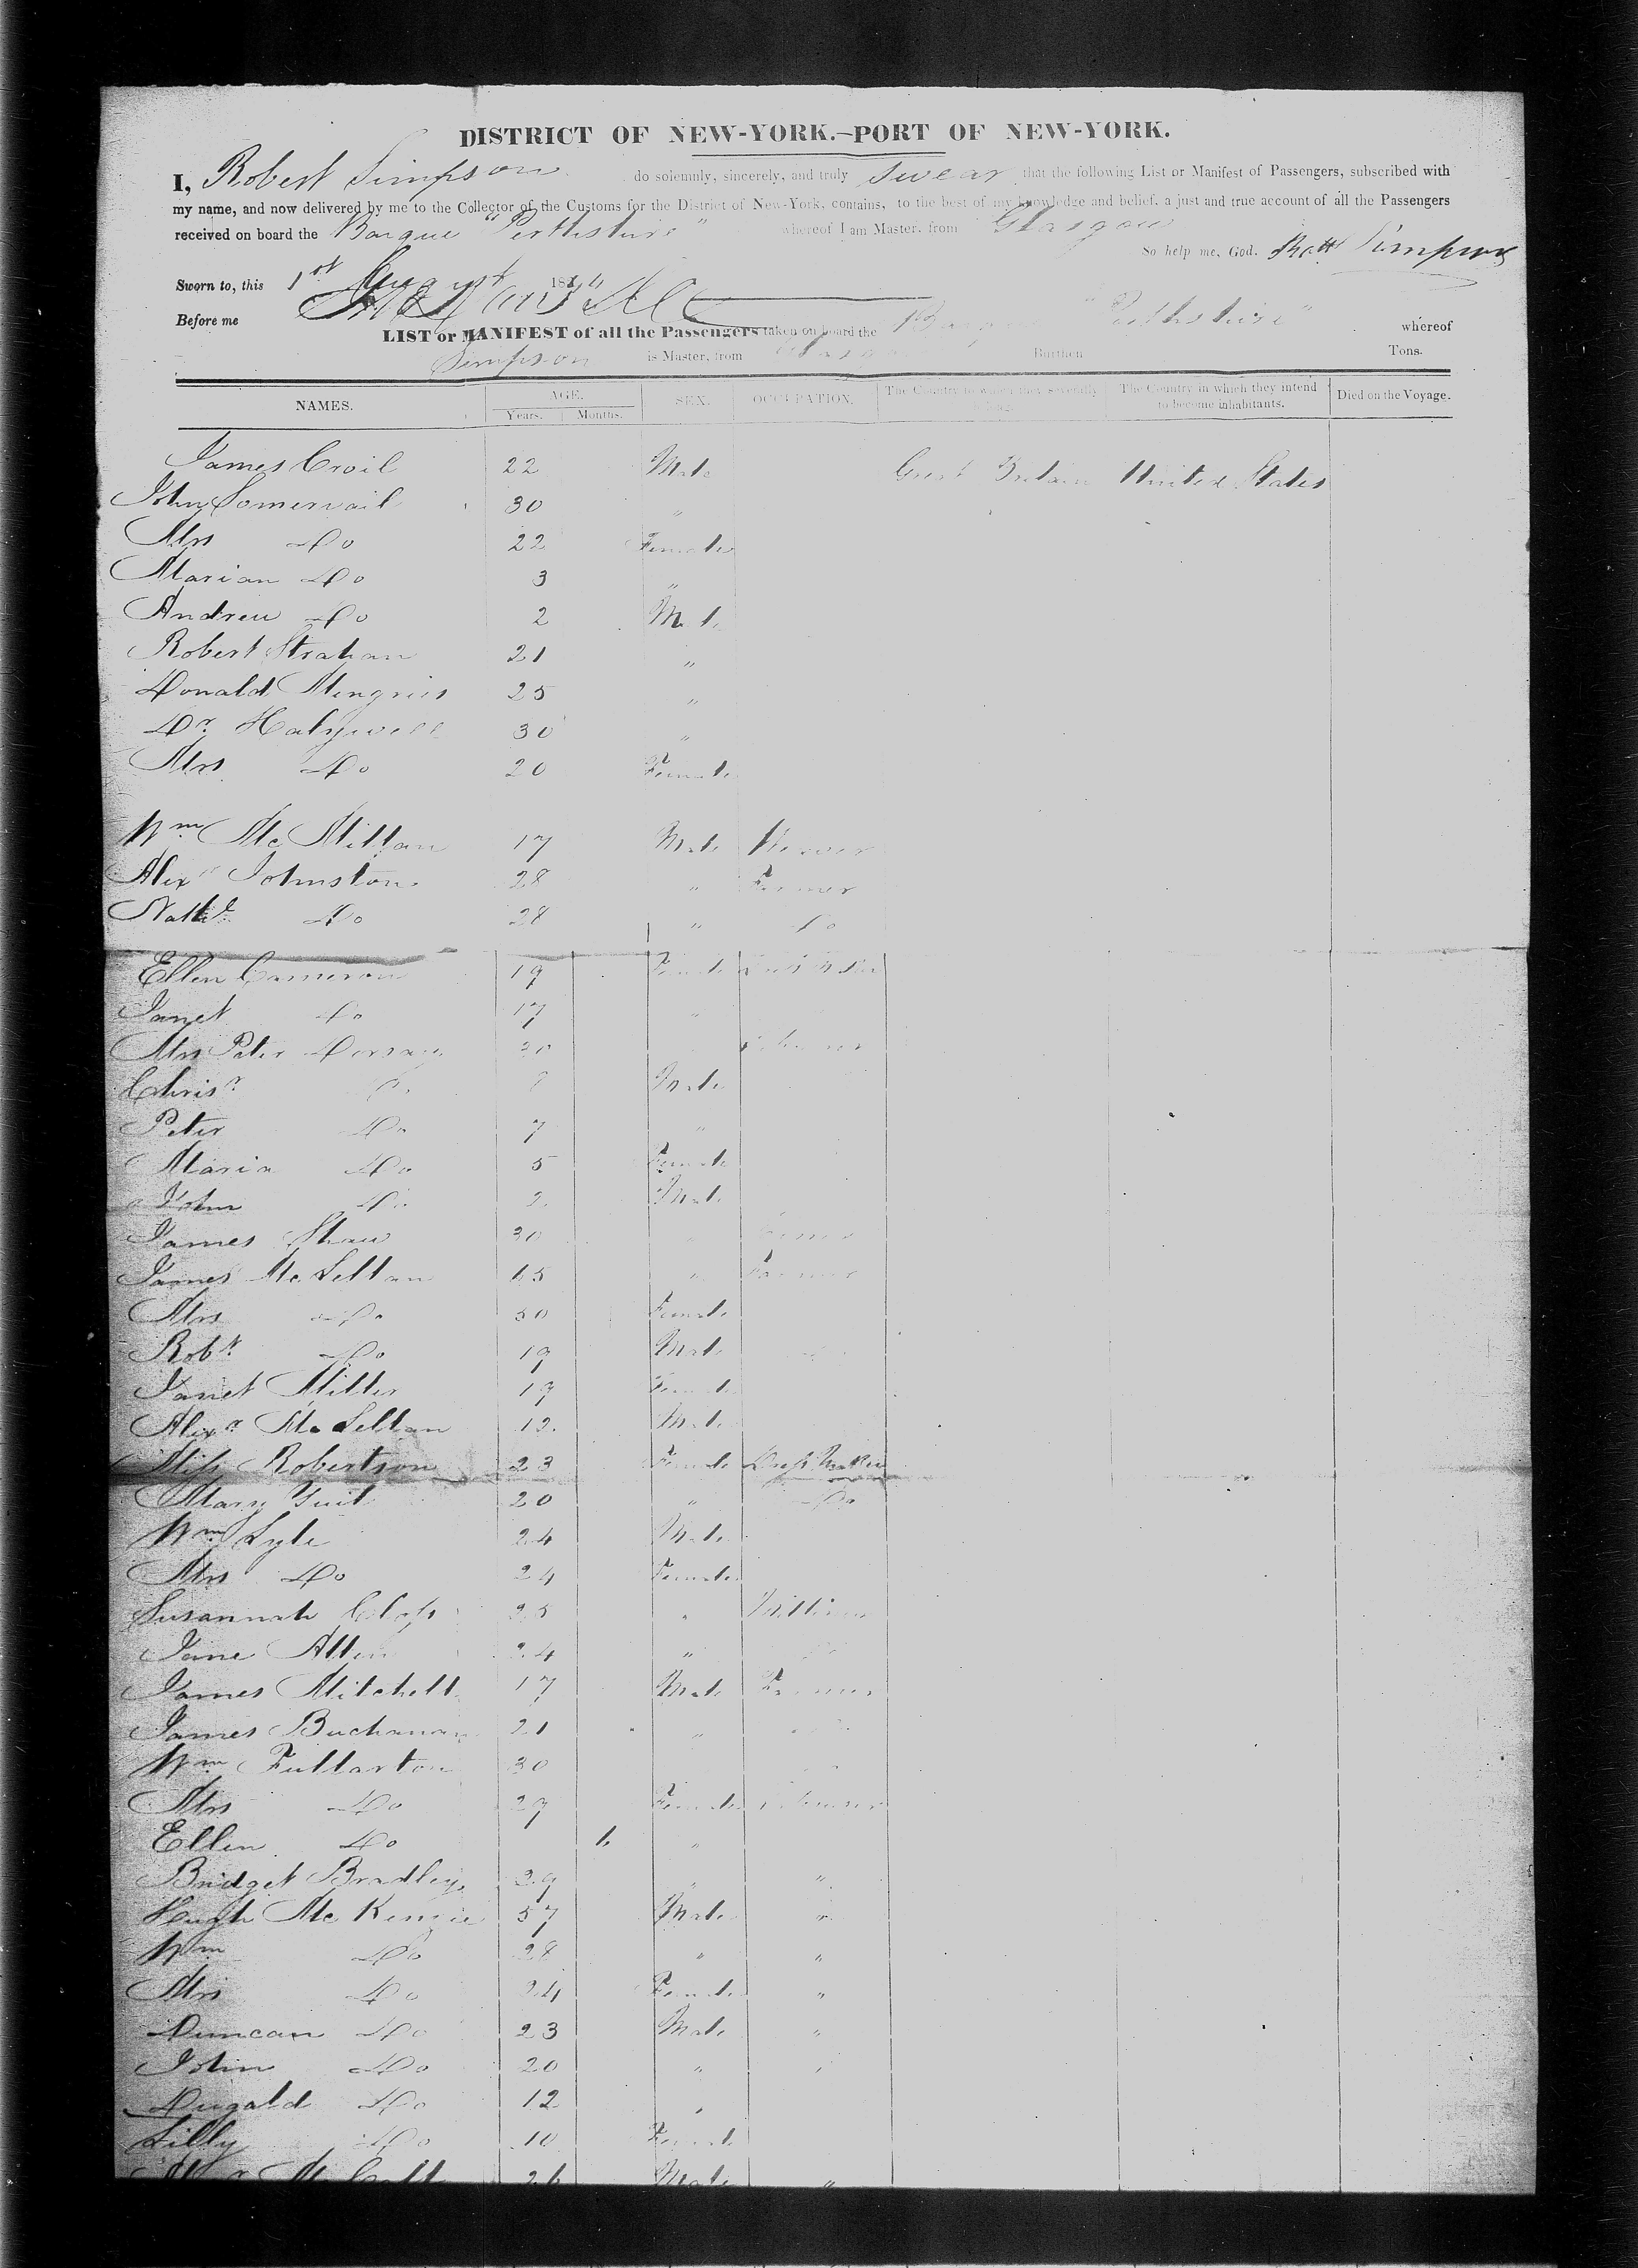 DISTRICT OF NEW-YORK.—PORT OF NEW-YORK.
I, Robert Simpson do solemnly, sincerely, and truly swear that the following List or Manifest of Passengers, subscribed with
my name, and now delivered by me to the Collector of the Customs for the District of New-York, contains, to the best of my knowledge and belief, a just and true account of all the Passengers
received on board the Barque "Perthshire" whereof I am Master, from Glasgow
So help me, God. Simpson
Sworn to, this 1st August
Before me
LIST or MANIFEST of all the Passengers taken on board the Barque "Perthshire" whereof
Simpson is Master, from Glasgow Burthen Tons.
NAMES. AGE. Years. Months. SEX. OCCUPATION. The Country to which they severally belong. The Country in which they intend to become inhabitants. Died on the Voyage.
James Croil 22 Male Great Britain United States
John Somervail 30 "
Mrs Do 22 Female
Marian Do 3 "
Andrew Do 2 Male
Robert Strahan 21 "
Donald 25 "
Dr. 30 "
Mrs Do 20 Female
Wm McMillan 17 Male Weaver
Alexr Johnston 28 " Farmer
Do 28 " Do
Ellen Cameron 19 Female
Janet Do 17 "
Mrs Peter
Chrisr Do 8 Male
Peter Do 7 "
Maria Do 5 Female
John Do 2 Male
James Shaw 30 "
James McLellan 65 " Farmer
Mrs Do 50 Female
Robt Do 19 Male
Janet Miller 19 Female
Alexr McLellan 12 Male
Miss Robertson 23 Female Dress Maker
Mary 20 " Do
Wm Lyle 24 Male
Mrs Do 24 Female
Susannah 25 " Milliner
Jane Allen 24 "
James Mitchell 17 Male Farmer
James Buchanan 21 "
Wm Fullarton 30
Mrs Do 29 Female
Ellen Do 6 "
Bridget Bradley 39 " "
Hugh McKenzie 57 Male "
Wm Do 28 " "
Mrs Do 24 Female "
Duncan Do 23 Male "
John Do 20 " "
Dugald Do 12 "
Lilly Do 10 Female
26 Male "